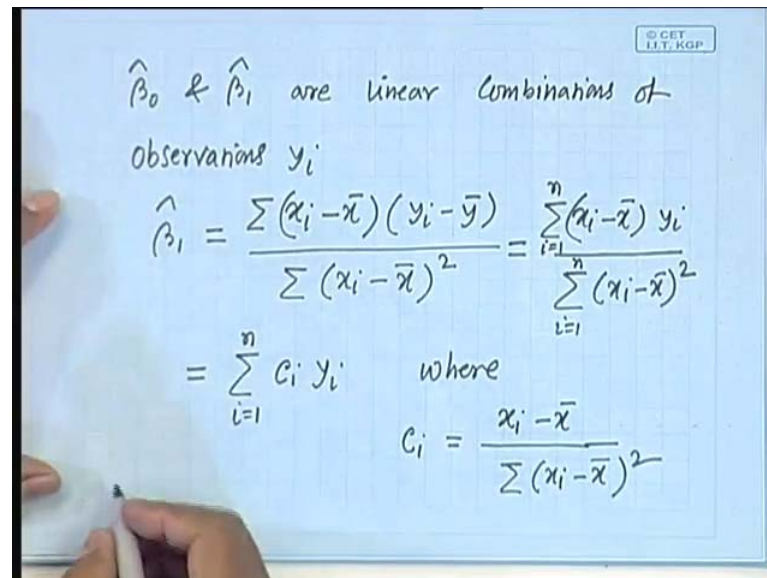 © CET
I.I.T. KGP
β̂₀ & β̂₁ are linear combinations of
observations yᵢ
β̂₁ = Σ(xᵢ-x̄)(yᵢ-ȳ) / Σ(xᵢ-x̄)² = Σᵢ₌₁ⁿ(xᵢ-x̄) yᵢ / Σᵢ₌₁ⁿ(xᵢ-x̄)²
= Σᵢ₌₁ⁿ cᵢ yᵢ where
cᵢ = xᵢ-x̄ / Σ(xᵢ-x̄)²